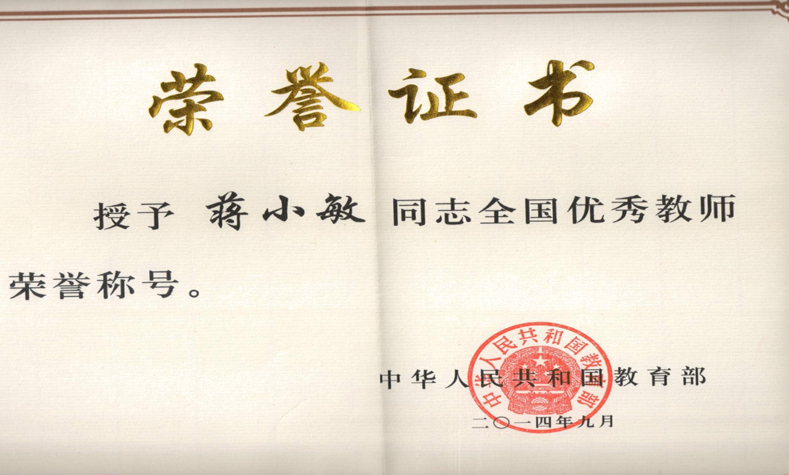 荣誉证书
授予 蒋小敏 同志全国优秀教师
荣誉称号。
中华人民共和国教育部
中华人民共和国教育部
二〇一四年九月